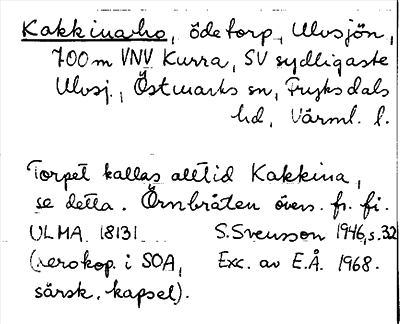 Kakkinaho, ödetorp, Ulvsjön,
700 m VNV Kurra, SV sydligaste
Ulvsj., Östmarks sn, Fryksdals
hd, Värml. l.
Torpet kallas alltid Kakkina,
se detta. Örnbråten övers. fr. fi.
ULMA 18131. S. Svensson 1946, s. 32
(xerokop. i SOA, Exc. av E.Å. 1968.
särsk. kapsel).